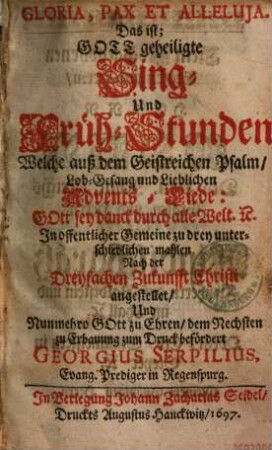 GLORIA, PAX ET ALLELUJA.
Das ist;
GOTT geheiligte
Sing-
Und
Früh-Stunden
Welche auß dem Geistreichen Psalm/
Lob-Gesang und Lieblichen
Advents-Liede:
GOtt sey danck durch alle Welt. ꝛc.
In offentlicher Gemeine zu drey unter-
schiedlichen mahlen
Nach der
Dreyfachen Zukunfft Christi
angestellet/
Und
Nunmehro GOtt zu Ehren/ dem Nechsten
zu Erbauung zum Druck befördert
GEORGIUS SERPILIUS,
Evang. Prediger in Regenspurg.
In Verlegung Johann Zacharias Seidel/
Druckts Augustus Hanckwitz/ 1697.